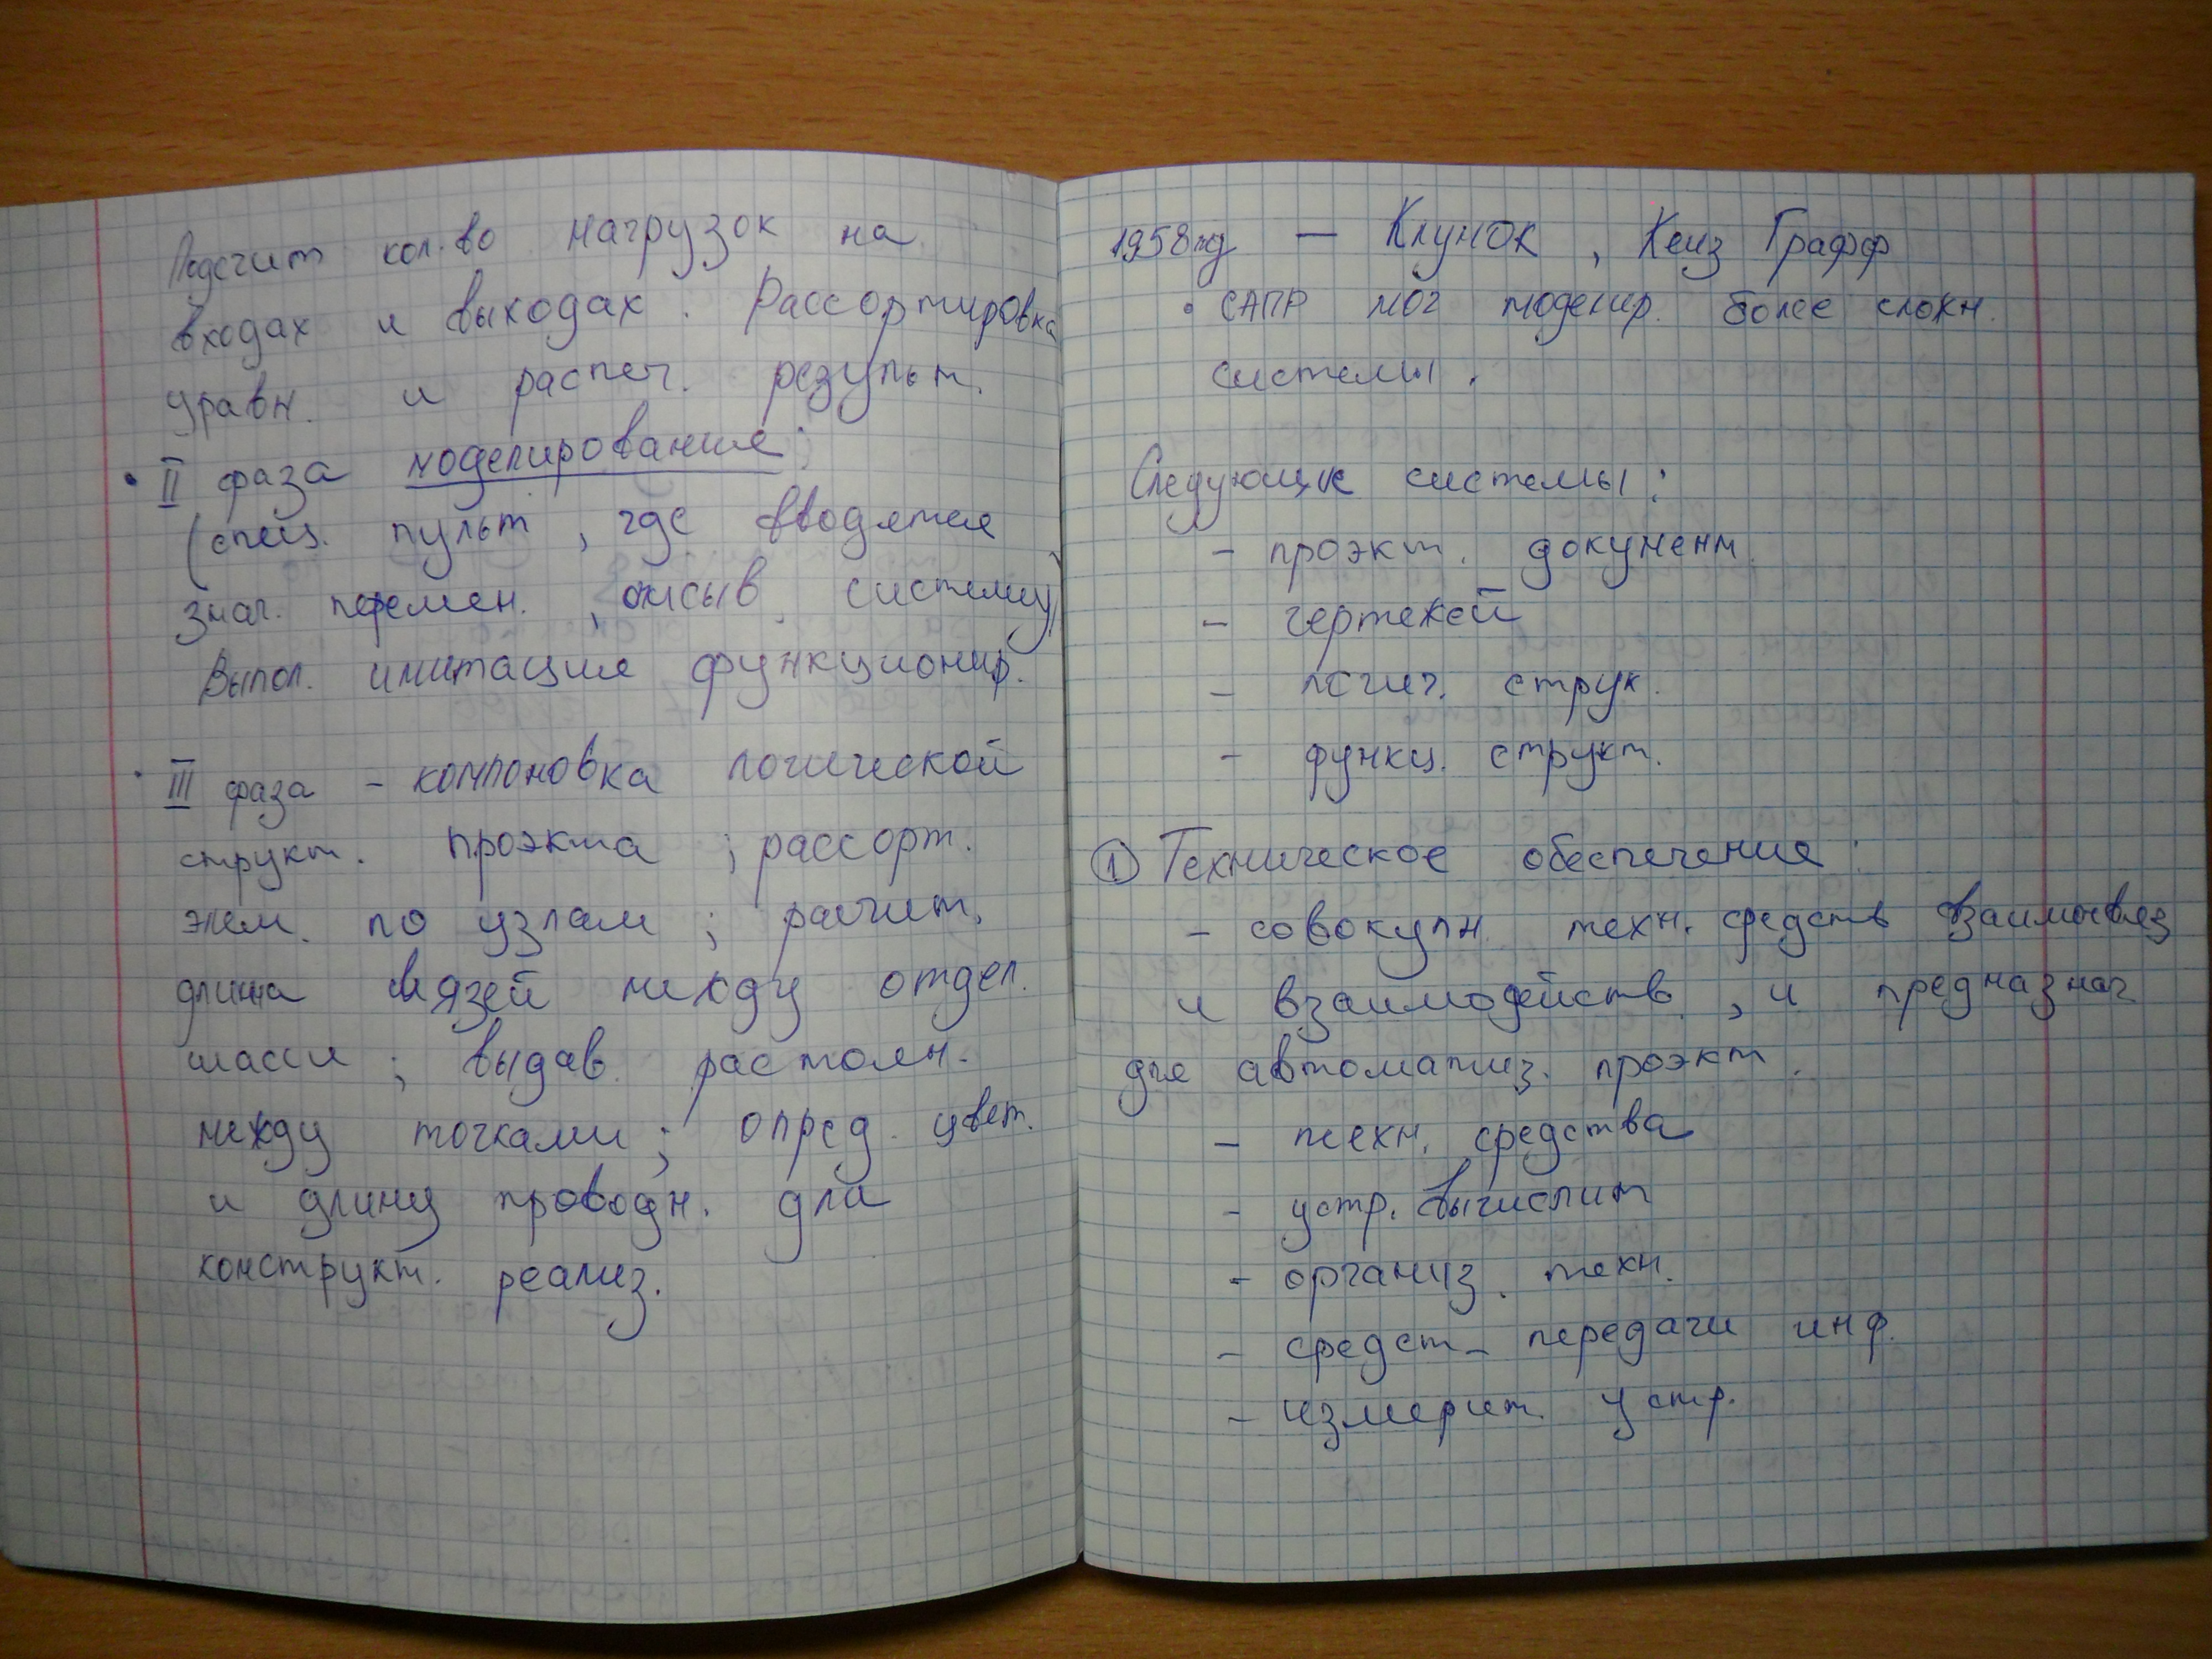 Подсчит кол-во нагрузок на
входах и выходах. Рассортировка
уравн. и распеч. результ.
• II фаза моделирование;
(спец. пульт, где вводятся
знач. перемен., описыв. систему)
Выпол. имитация функционир.
• III фаза - компоновка логической
структ. проэкта; рассорт.
элем. по узлам; расчит.
длина связей между отдел.
шасси; выдав. растоян.
между точками; опред. цвет.
и длину проводн. для
конструкт. реализ.
1958 год — Клунок, Кейз Графф
• САПР мог моделир. более сложн.
системы.
Следующие системы:
- проэкт. документ.
- чертежей
- логич. струк.
- функц. структ.
① Техническое обеспечение:
- совокупн. техн. средств взаимосвяз
и взаимодейств., и предназнач
для автоматиз. проэкт.
- техн. средства
- устр. вычислит
- организ. техн.
- средст- передачи инф.
- измерит. устр.